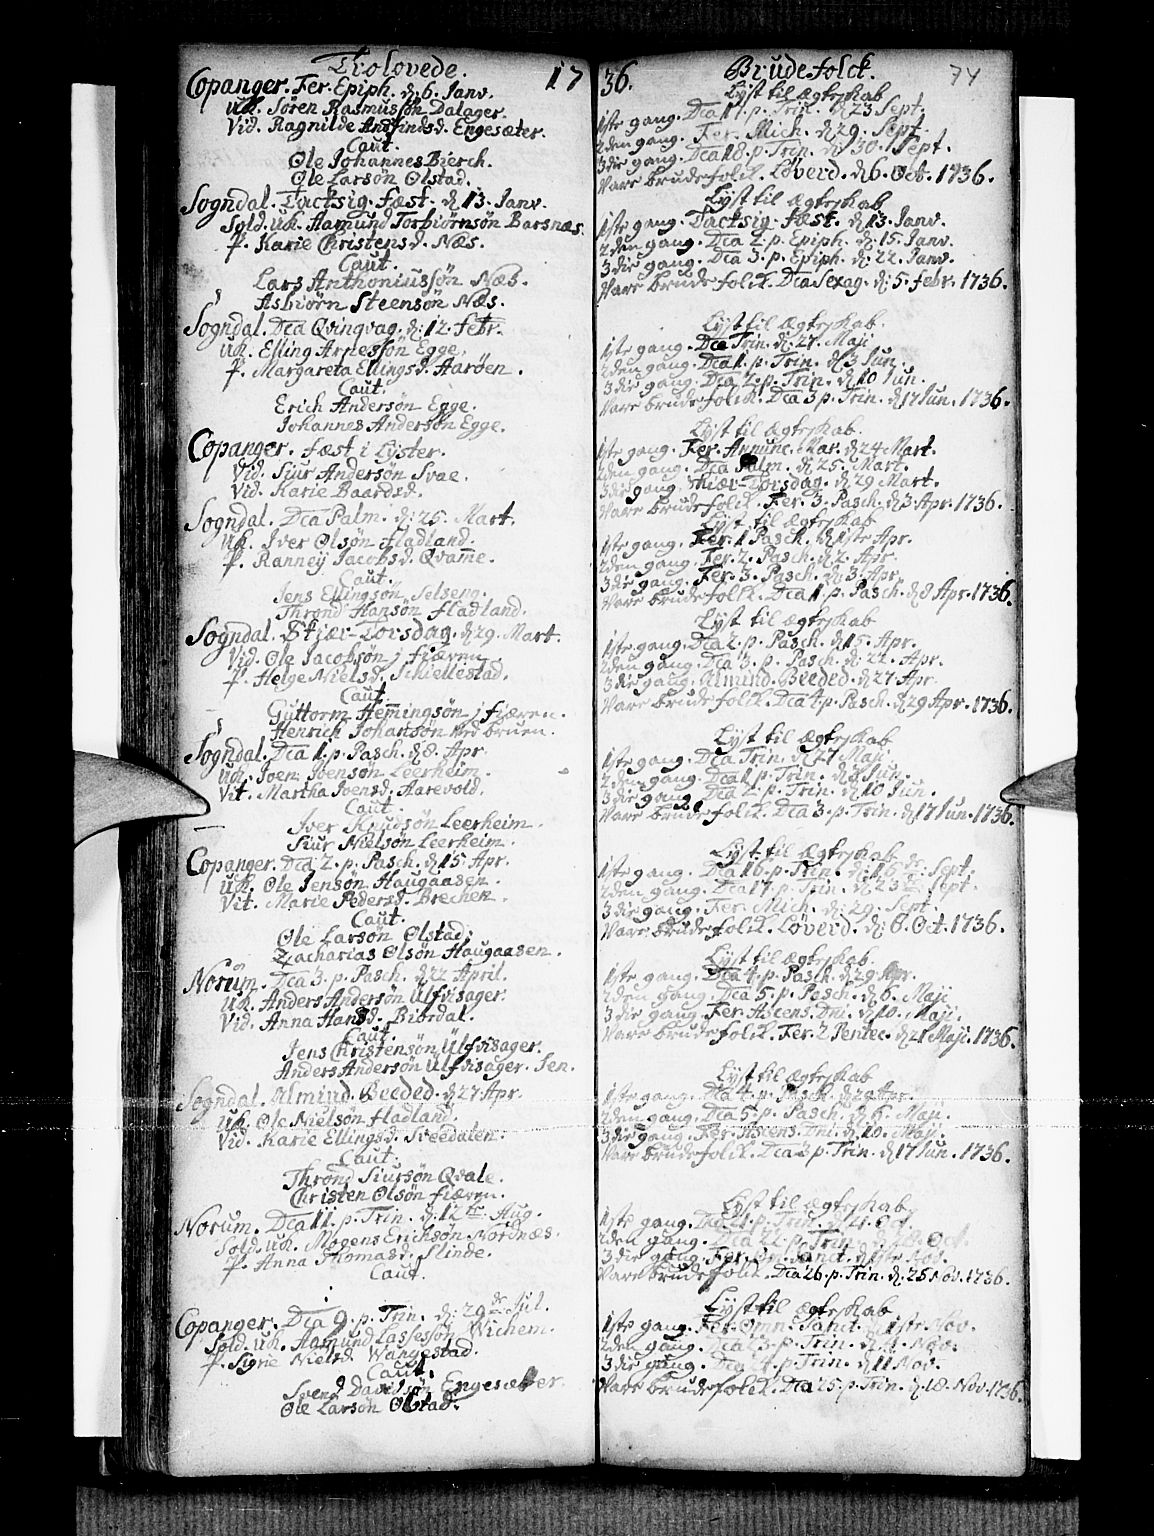 Trolovede. 17
Copanger. Fer. Epiph. d. 6. Janv.
uk. Søren Rasmussøn Dalager.
Vid. Ragnilde Andfindsd. Engesæter.
Caut.
Ole Johannes Bierch.
Ole Larsøn Ølstad.
Sogndal. Tacksig. Fæst. d. 13. Janv.
Sold. uk. Aamund Torbiørnsøn Barsnæs.
P. Karie Christensd. Næs.
Caut.
Lars Anthoniussøn Næs.
Asbiørn Steensøn Næs.
Sogndal. Dca Qvinqvag. d. 12. febr.
uk. Elling Arnessøn Egge.
P. Margareta Ellingsd. Aarøen.
Caut.
Erich Andersøn Egge.
Johannes Andersøn Egge.
Copanger. fæst i Lyster.
Vid. Siur Andersøn Svae.
Vid. Karie Baardsd.
Sogndal. Dca Palm. d. 25. Mart.
uk. Iver Olsøn fladland.
P. Ranneÿ Jacobsd. Qvam̄e.
Caut.
Jens Ellingsøn Selseng.
Thrond Hansøn fladland.
Sogndal. Skiær-Torsdag. d. 29. Mart.
Vid. Ole Jacobsøn j fiæren.
P. Helge Nielsd. Skiellestad.
Caut.
Guttorm Hem̄ingsøn j fiæren.
Henrich Johansøn ved bruen.
Sogndal. Dca 1. p. Pasch. d. 8. Apr.
uk. Joen Joensøn Leerheim.
Vit. Martha Ivensd. Aarevold.
Caut.
Iver Knudsøn Leerheim.
Siur Nielsøn Leerheim.
Copanger. Dca 2. p. Pasch. d. 15. Apr.
uk. Ole Jensøn Haugaasen.
Vit. Marie Pedersd. Brechen.
Caut.
Ole Larsøn Ølstad.
Zacharias Olsøn Haugaasen.
Norum. Dca 3. p. Pasch. d. 22 April.
uk. Anders Andersøn Ulfvisager.
Vid. Anna Hansd. Biordal.
Caut.
Jens Christensøn Ulfvisager.
Anders Andersøn Ulfvisager. Sen.
Sogndal. Almind. Beeded. d. 27 Apr.
uk. Ole Nielsøn fladland.
Vid. Karie Ellingsd. Sveedalen.
Caut.
Thrond Siursøn Qvale.
Christen Olsøn fiæren.
Norum. Dca 11. p. Trin. d. 12te Aug.
Sold. uk. Mogens Erichsøn Nordnæs.
P. Anna Thomasd. Slinde.
Caut.
Copanger. Dca 9. p. Trin. d. 29de Jul.
Sold. uk. Aamund Lassessøn Wichem.
P. Sigrie Nielsd. Wangestad.
Caut.
Svend Davidsøn Engesætter.
Ole Larsøn Ølstad.
36. Brudefolck. 74
Lyst til Ægteskab
1ste gang. Dca 17. p. Trin. d. 23 Sept.
2den gang. Fer. Mich. d. 29. Sept.
3die gang. Dca 18. p. Trin. d. 30. Sept.
Vare brudefolck. Løverd. d. 6. Oct. 1736.
Lyst til Ægteskab
1ste gang. Tacksig. fæst. d. 13. Janv.
2den gang. Dca 2. p. Epiph. d. 15. Janv.
3die gang. Dca 3. p. Epiph. d. 22. Janv.
Vare brudefolck. Dca Sexag. d. 5. febr. 1736.
Lyst til Ægteskab.
1ste gang. Dca Trin. d. 27. Maji
2den gang. Dca 1. p. Trin. d. 3 Jun.
3die gang. Dca 2. p. Trin. d. 10 Jun.
Vare brudefolck. Dca 3 p. Trin. d. 17 Jun. 1736.
Lyst til Ægteskab.
1ste gang. Fer. Annunc. Mar. d. 24 Mart.
2den gang. Dca Palm. d. 25. Mart.
3die gang. Skiær-Torsdag. d. 29 Mart.
Vare brudefolck. Fer. 3. Pasch. d. 3 Apr. 1736.
Lyst til Ægteskab
1ste gang. Fer. 1 Pasch. d. 1ste Apr.
2den gang. Fer. 2. Pasch. d. 2. Apr.
3die gang. Fer. 3. Pasch. d. 3. Apr.
Vare brudefolck. Dca 1. p. Pasch. d. 8 Apr. 1736.
Lyst til Ægteskab
1ste gang. Dca 2. p. Pasch. d. 15. Apr.
2den gang. Dca 3. p. Pasch. d. 22. Apr.
3die gang. Almind. Beeded. d. 27 Apr.
Vare brudefolck. Dca 4. p. Pasch. d. 29 Apr. 1736.
Lyst til Ægteskab
1ste gang. Dca Trin. d. 27 Maji
2den gang. Dca 1. p. Trin. d. 3 Jun.
3die gang. Dca 2. p. Trin. d. 10 Jun.
Vare brudefolck. Dca 3. p. Trin. d. 17 Jun. 1736.
Lyst til Ægteskab
1ste gang. Dca 16. p. Trin. d. 16de Sept.
2den gang. Dca 17. p. Trin. d. 23 Sept.
3die gang. Fer. Mich. d. 29. Sept.
Vare brudefolck. Løverd. d. 6. Oct. 1736.
Lyst til Ægteskab.
1ste gang. Dca 4. p. Pasch. d. 29 Apr.
2den gang. Dca 5. p. Pasch. d. 6. Maji
3die gang. Fer. Ascens. Dni. d. 10. Maji.
Vare brudefolck. Fer. 2 Pentec. d. 21 Maji. 1736.
Lyst til Ægteskab
1ste gang. Dca 4. p. Pasch. d. 29 Apr.
2den gang. Dca 5. p. Pasch. d. 6. Maji.
3die gang. Fer. Ascens. Dni. d. 10. Maji.
Vare brudefolck. Dca 3 p. Trin. d. 17 Jun. 1736.
Lyst til Ægteskab
1ste gang. Dca 21. p. Trin. d. 21. Oct.
2den gang. Dca 22. p. Trin. d. 28. Oct.
3die gang. Fer. Omn. Sanct. d. 1ste Nov.
Vare brudefolck. Dca 26. p. Trin. d. 25 Nov. 1736.
Lyst til Ægteskab
1ste gang. Fer. Omn. Sanct. d. 1ste Nov.
2den gang. Dca 23. p. Trin. d. 4. Nov.
3die gang. Dca 24. p. Trin. d. 11 Nov.
Vare brudefolck. Dca 25. p. Trin. d. 18. Nov. 1736.